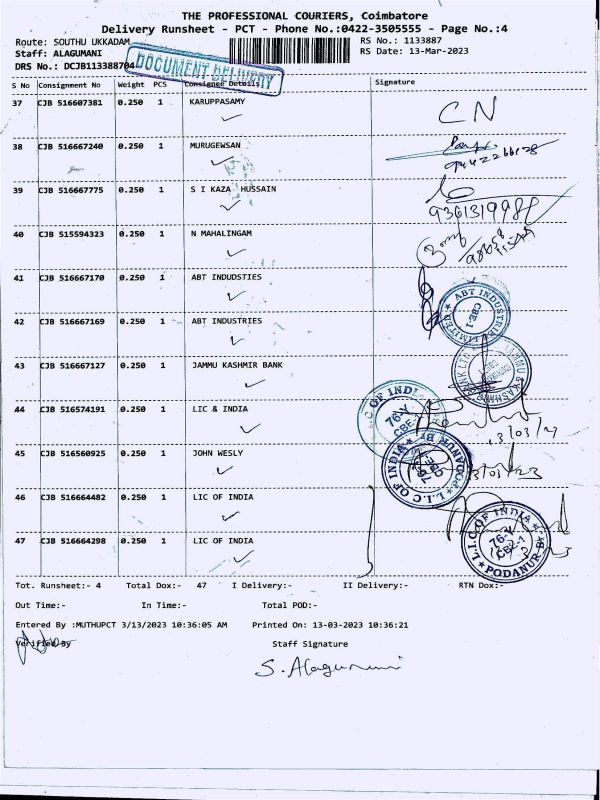 THE PROFESSIONAL COURIERS, Coimbatore
Delivery Runsheet - PCT - Phone No.:0422-3505555 - Page No.:4
Route: SOUTHU UKKADAM RS No.: 1133887
Staff: ALAGUMANI RS Date: 13-Mar-2023
DRS No.: DCJB113388704
DOCUMENT DELIVERY
S No Consignment No Weight PCS Consignee Details Signature
37 CJB 516607381 0.250 1 KARUPPASAMY CN
38 CJB 516667240 0.250 1 MURUGEWSAN
39 CJB 516667775 0.250 1 S I KAZA HUSSAIN
40 CJB 515594323 0.250 1 N MAHALINGAM
41 CJB 516667170 0.250 1 ABT INDUDSTIES
ABT INDUSTRIES LIMITED CBE-1
42 CJB 516667169 0.250 1 ABT INDUSTRIES
43 CJB 516667127 0.250 1 JAMMU KASHMIR BANK
44 CJB 516574191 0.250 1 LIC & INDIA
45 CJB 516560925 0.250 1 JOHN WESLY
L.I.C OF INDIA
46 CJB 516664482 0.250 1 LIC OF INDIA
47 CJB 516664298 0.250 1 LIC OF INDIA
L.I.C OF INDIA 76-V CBE-1 PODANUR B
Tot. Runsheet:- 4 Total Dox:- 47 I Delivery:- II Delivery:- RTN Dox:-
Out Time:- In Time:- Total POD:-
Entered By :MUTHUPCT 3/13/2023 10:36:05 AM Printed On: 13-03-2023 10:36:21
Verified By Staff Signature
S. Alagumani